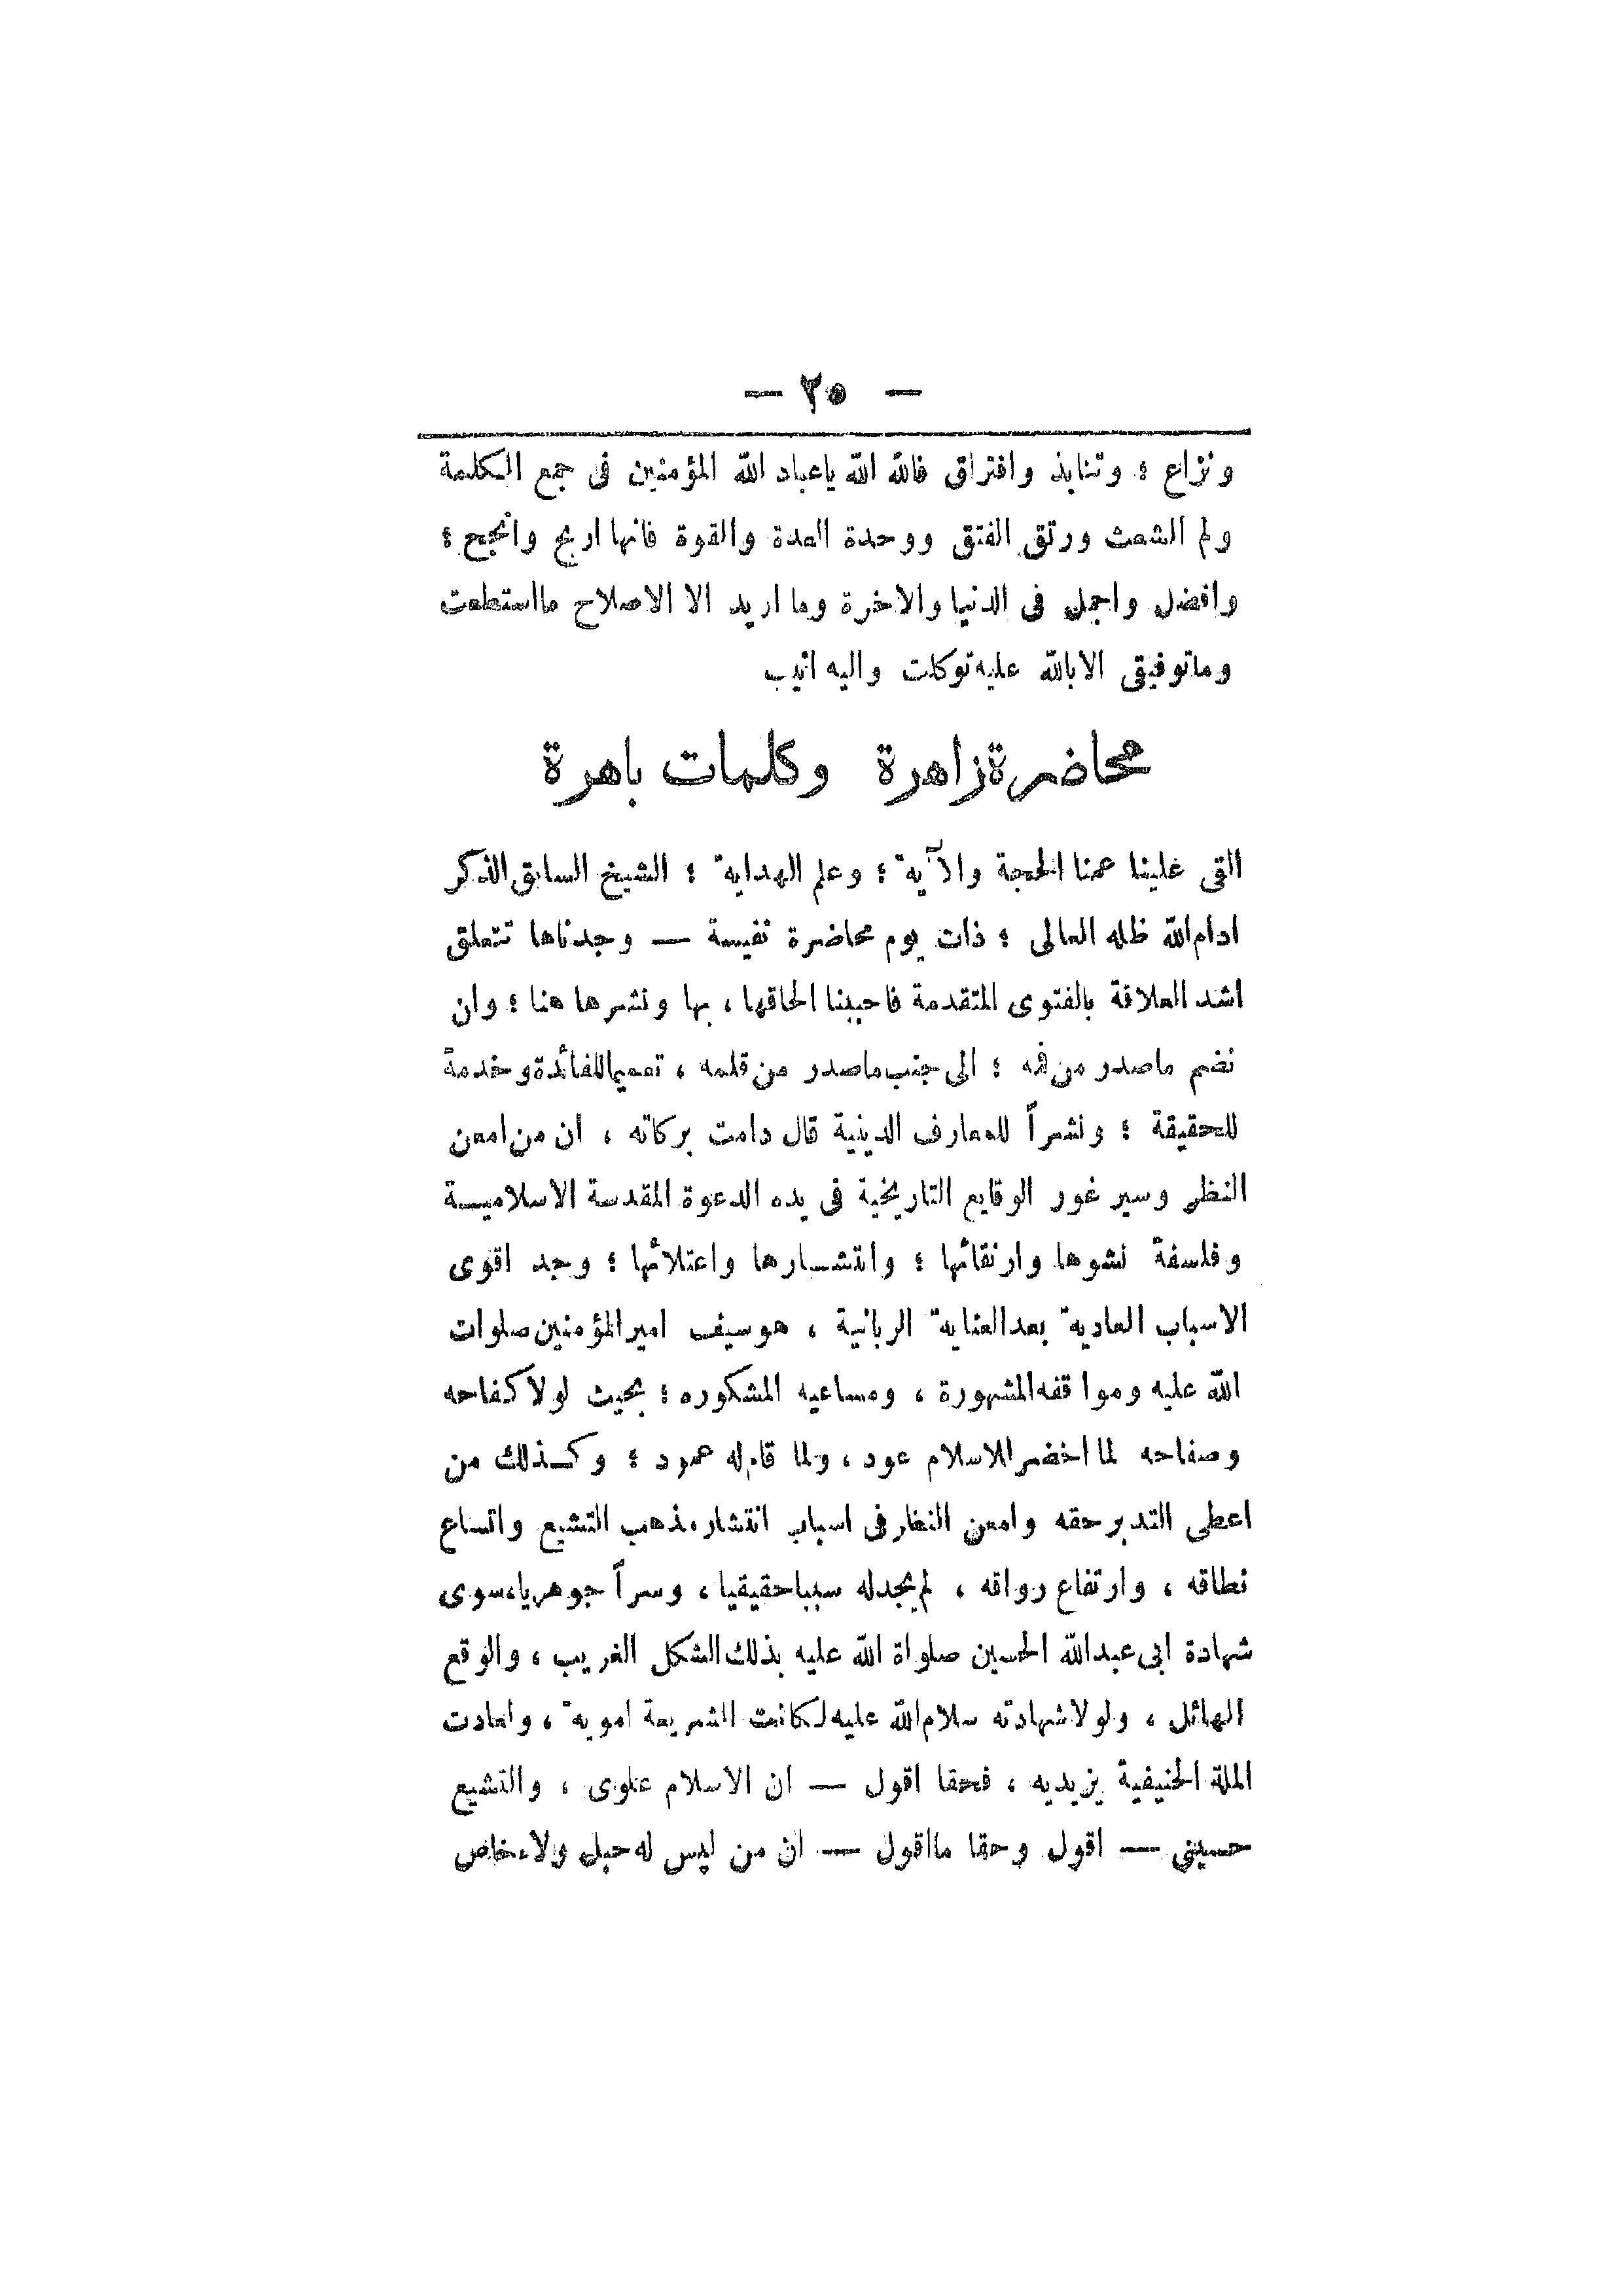 — ٢٥ —
ونزاع ؛ وتنابذ وافتراق فالله الله ياعباد الله المؤمنين فى جمع الكلمة
ولم الشعث ورتق الفتق ووحدة العدة والقوة فانها اربح وانجح ؛
وافضل واجمل فى الدنيا والاخرة وما اريد الا الاصلاح مااستطعت
وماتوفيقى الابالله عليه توكلت واليه انيب
محاضرة زاهرة وكلمات باهرة
القى علينا عمنا الحجة والآية ؛ وعلم الهداية ؛ الشيخ السابق الذكر
ادام الله ظله العالى ؛ ذات يوم محاضرة نفيسة — وجدناها تتعلق
اشد العلاقة بالفتوى المتقدمة فاحببنا الحاقها ، بها ونشرها هنا ؛ وان
نضم ماصدر من فمه ؛ الى جنب ماصدر من قلمه ، تعميما للفائدة وخدمة
للحقيقة ؛ ونشراً للمعارف الدينية قال دامت بركاته ، ان من امعن
النظر وسبر غور الوقايع التاريخية فى بدء الدعوة المقدسة الاسلاميـة
وفلسفة نشوها وارتقائها ؛ وانتشـارها واعتلائها ؛ وجد اقوى
الاسباب العادية بعد العناية الربانية ، هوسيف امير المؤمنين صلوات
الله عليه ومواقفه المشهورة ، ومساعيه المشكوره ؛ بحيث لولا كفاحه
وصفاحه لما اخضر للاسلام عود ، ولما قام له عمود ؛ وكـذلك من
اعطى التدبر حقه وامعن النظر فى اسباب انتشار مذهب التشيع واتساع
نطاقه ، وارتفاع رواقه ، لم يجد له سببا حقيقيا ، وسراً جوهريا ، سوى
شهادة ابى عبد الله الحسين صلواة الله عليه بذلك الشكل الغريب ، والوقع
الهائل ، ولولا شهادته سلام الله عليه لكانت الشريعة اموية ، ولعادت
الملة الحنيفية يزيديه ، فحقا اقول — ان الاسلام علوى ، والتشيع
حسينى — اقول وحقا مااقول — ان من ليس له حبل ولاء خاص